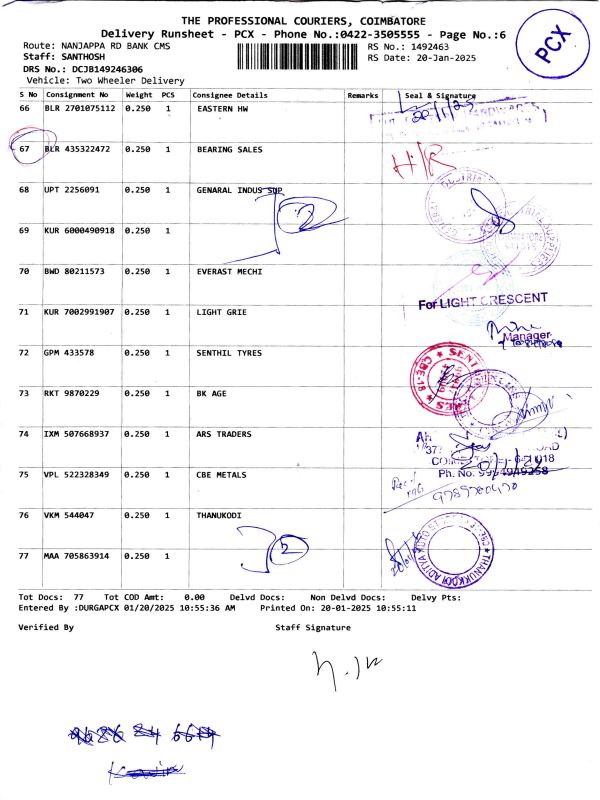 THE PROFESSIONAL COURIERS, COIMBATORE
Delivery Runsheet - PCX - Phone No.:0422-3505555 - Page No.:6
PCX
Route: NANJAPPA RD BANK CMS
RS No.: 1492463
Staff: SANTHOSH
RS Date: 20-Jan-2025
DRS No.: DCJB149246306
Vehicle: Two Wheeler Delivery
S No Consignment No Weight PCS Consignee Details Remarks Seal & Signature
66 BLR 2701075112 0.250 1 EASTERN HW
67 BLR 435322472 0.250 1 BEARING SALES H/R
68 UPT 2256091 0.250 1 GENARAL INDUS SUP
2
69 KUR 6000490918 0.250 1
70 BWD 80211573 0.250 1 EVERAST MECHI
For LIGHT CRESCENT
71 KUR 7002991907 0.250 1 LIGHT GRIE
Manager
72 GPM 433578 0.250 1 SENTHIL TYRES
73 RKT 9870229 0.250 1 BK AGE
74 IXM 507668937 0.250 1 ARS TRADERS
75 VPL 522328349 0.250 1 CBE METALS
Ph. No.
76 VKM 544047 0.250 1 THANUKODI
2
77 MAA 705863914 0.250 1
Tot Docs: 77 Tot COD Amt: 0.00 Delvd Docs: Non Delvd Docs: Delvy Pts:
Entered By :DURGAPCX 01/20/2025 10:55:36 AM Printed On: 20-01-2025 10:55:11
Verified By Staff Signature